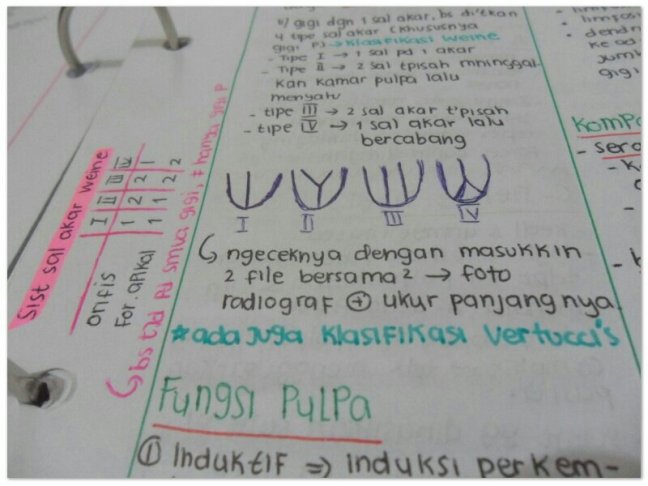 b/ gigi dgn 1 sal akar, bs di'tkan
4 tipe sal akar (khususnya
gigi P) → Klasifikasi Weine
- Tipe I → 1 sal pd 1 akar
- Tipe II → 2 sal tpisah mninggal-
kan kamar pulpa lalu
menyatu
- tipe III → 2 sal akar t'pisah
- tipe IV → 1 sal akar lalu
bercabang
I II III IV
ngeceknya dengan masukkin
2 file bersama2 → foto
radiograf ⊕ ukur panjangnya
*ada juga Klasifikasi Vertucci's
Fungsi Pulpa
① Induktif ⇒ induksi perkem-
Sist sal akar weine
I II III IV
onfis 1 2 2 1
For. apikal 1 1 2 2
bs tjd pd smua gigi, ≠ hanya gigi P
- limfos
- dendr
ke od
jumb
gigi
Komp
- sera